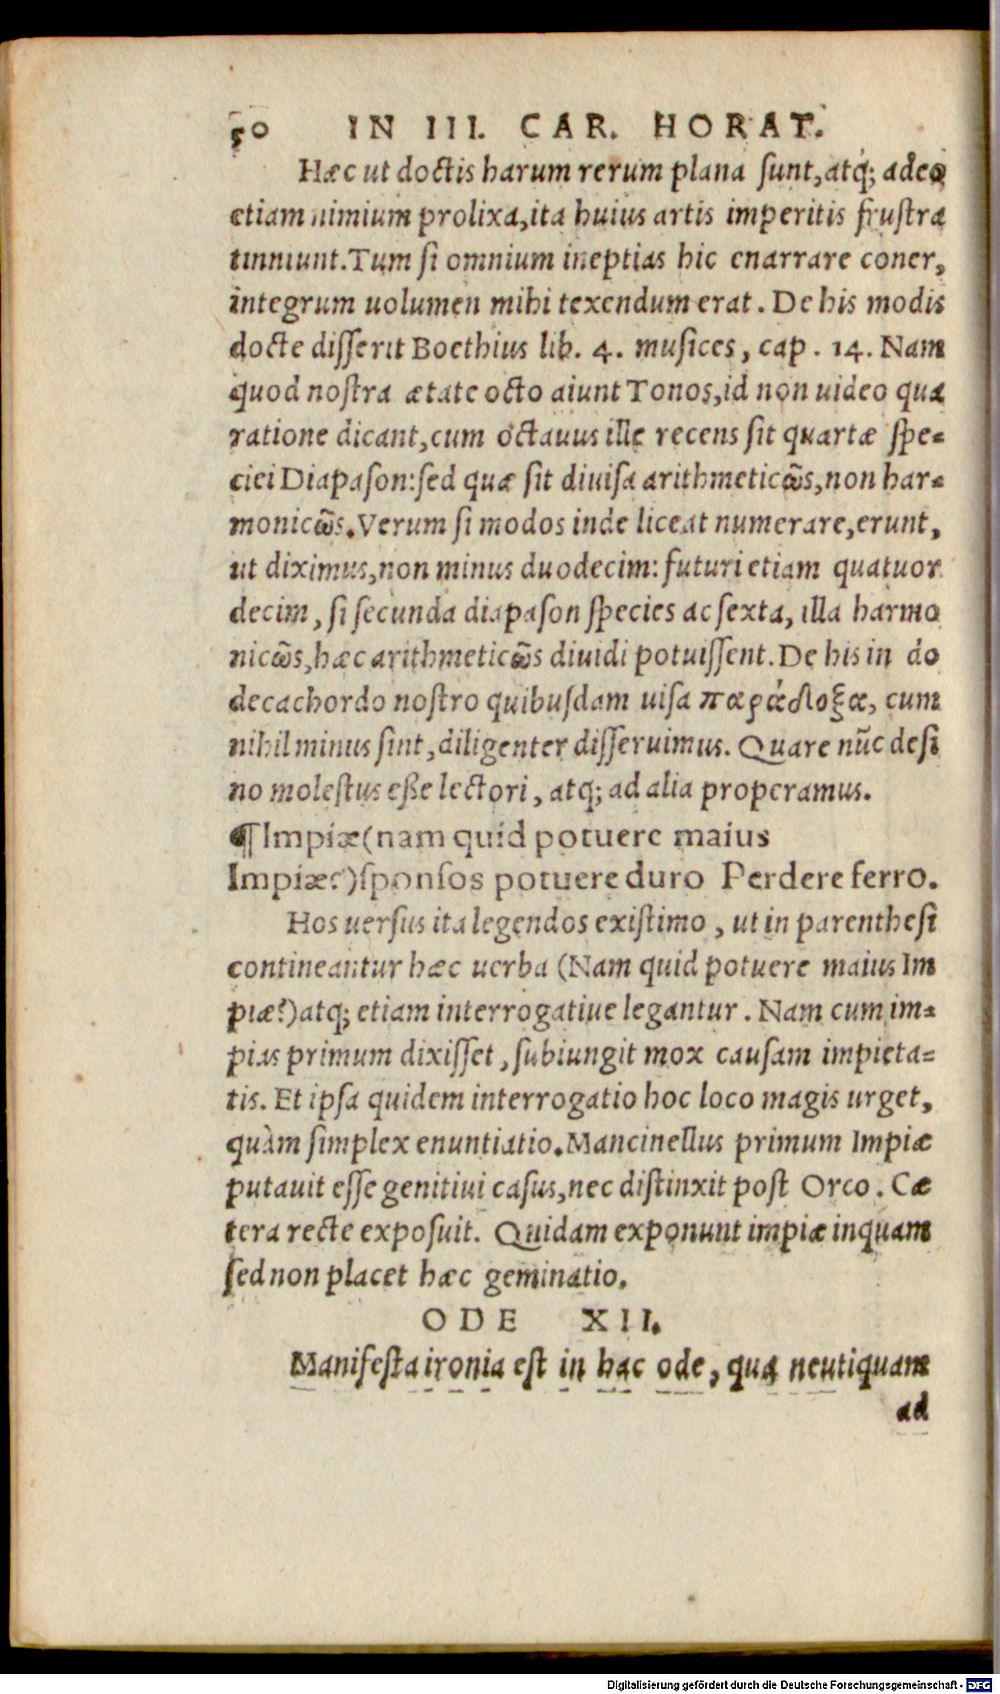 50 IN III. CAR. HORAT.
Hæc ut doctis harum rerum plana sunt, atq; adeo
etiam nimium prolixa, ita huius artis imperitis frustra
tinniunt. Tum si omnium ineptias hic enarrare coner,
integrum uolumen mihi texendum erat. De his modis
docte disserit Boethius lib. 4. musices, cap. 14. Nam
quod nostra ætate octo aiunt Tonos, id non uideo qua
ratione dicant, cum octauus ille recens sit quartæ spe-
ciei Diapason: sed quæ sit diuisa arithmeticῶs, non har-
monicῶs. Verum si modos inde liceat numerare, erunt,
ut diximus, non minus duodecim: futuri etiam quatuor
decim, si secunda diapason species ac sexta, illa harmo
nicῶs, hæc arithmeticῶs diuidi potuissent. De his in do
decachordo nostro quibusdam uisa παράδοξα, cum
nihil minus sint, diligenter disseruimus. Quare nūc desi
no molestus eße lectori, atq; ad alia properamus.
¶Impiæ(nam quid potuere maius
Impiæ?)sponsos potuere duro Perdere ferro.
Hos uersus ita legendos existimo, ut in parenthesi
contineantur hæc uerba (Nam quid potuere maius Im
piæ?) atq; etiam interrogatiue legantur. Nam cum im-
pias primum dixisset, subiungit mox causam impieta-
tis. Et ipsa quidem interrogatio hoc loco magis urget,
quàm simplex enuntiatio. Mancinellus primum Impiæ
putauit esse genitiui casus, nec distinxit post Orco. Cæ
tera recte exposuit. Quidam exponunt impiæ inquam
sed non placet hæc geminatio.
ODE XII.
Manifesta ironia est in hac ode, qua neutiquam
ad
Digitalisierung gefördert durch die Deutsche Forschungsgemeinschaft - DFG